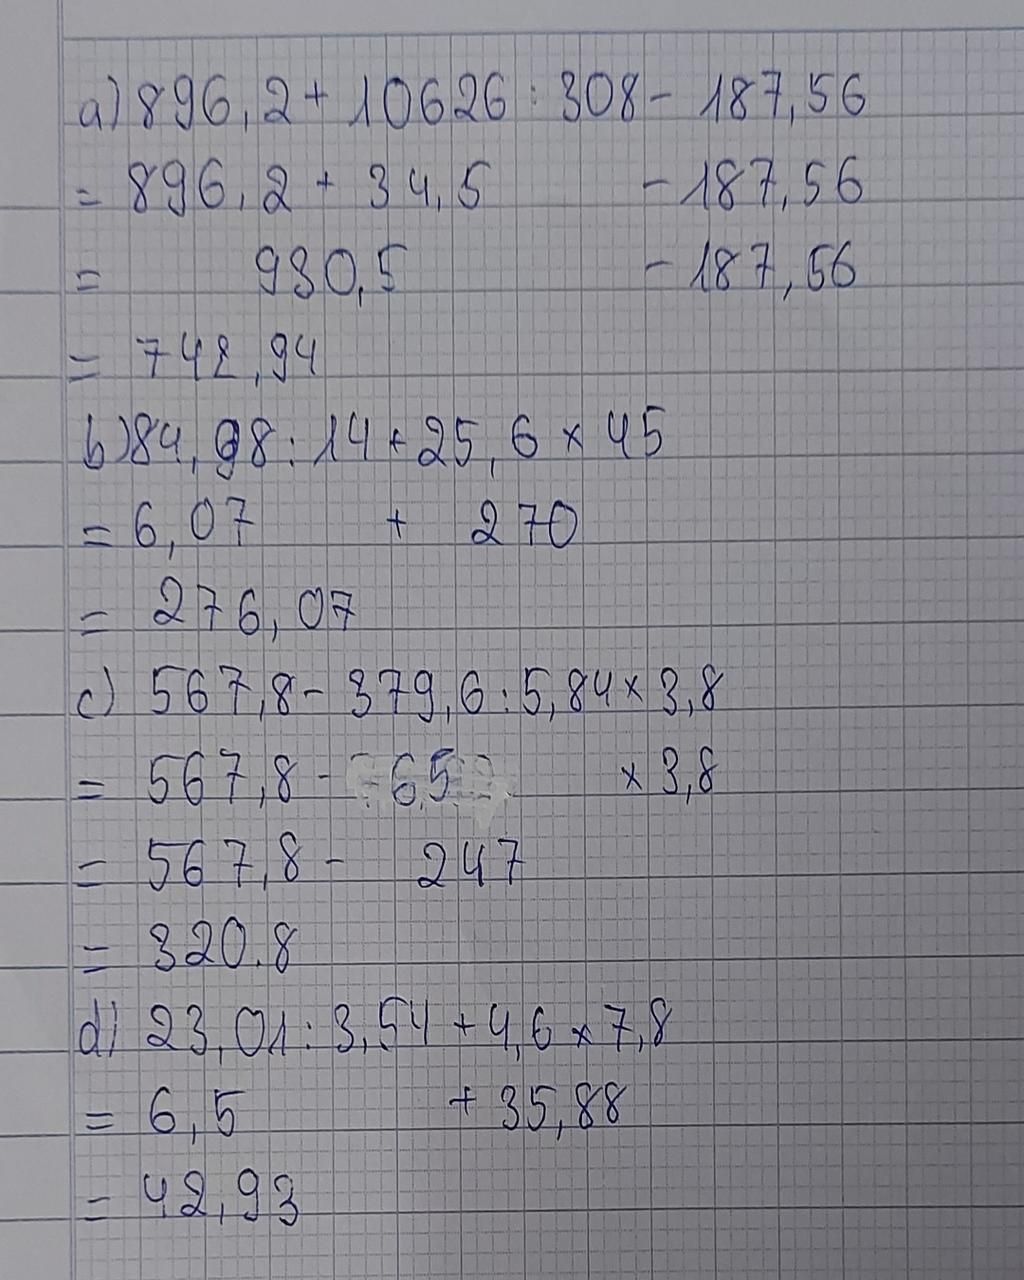 a) 896,2 + 10626 : 308 - 187,56
= 896,2 + 34,5 - 187,56
= 930,5 - 187,56
= 742,94
b) 84,98 : 14 + 25,6 x 45
= 6,07 + 270
= 276,07
c) 567,8 - 379,6 : 5,84 x 3,8
= 567,8 - 65 x 3,8
= 567,8 - 247
= 320.8
d) 23,01 : 3,54 + 4,6 x 7,8
= 6,5 + 35,88
= 42,93